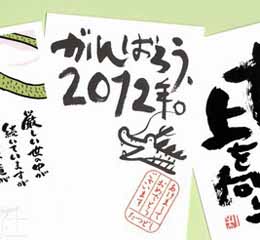 がんばろう、
2012年。
あけまして
おめでとう
ございます
たつどし
厳しい世の中が
続いていますが
上を向